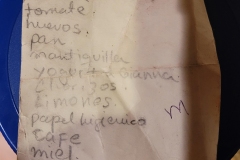 tomate.
huevos.
pan
mantiquilla
yogurt
Chorizos.
Limones.
papel higienico
Cafe
miel.
M